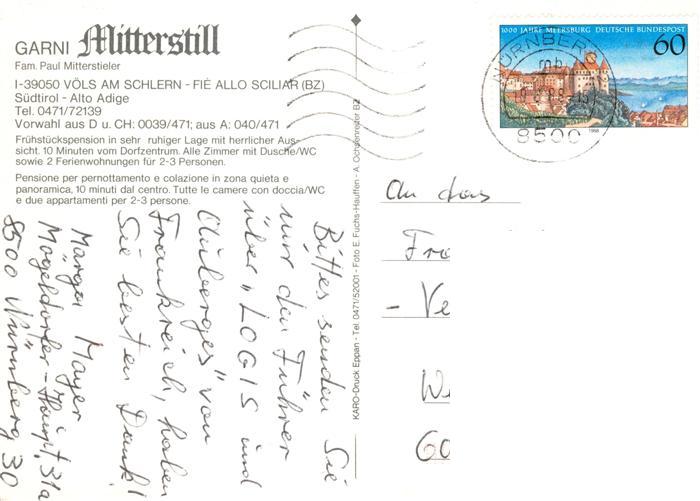 GARNI Mitterstill
Fam. Paul Mitterstieler
I-39050 VÖLS AM SCHLERN - FIÈ ALLO SCILIAR (BZ)
Südtirol - Alto Adige
Tel. 0471/72139
Vorwahl aus D u. CH: 0039/471; aus A: 040/471
Frühstückspension in sehr ruhiger Lage mit herrlicher Aus-
sicht. 10 Minuten vom Dorfzentrum. Alle Zimmer mit Dusche/WC
sowie 2 Ferienwohnungen für 2-3 Personen.
Pensione per pernottamento e colazione in zona quieta e
panoramica, 10 minuti dal centro. Tutte le camere con doccia/WC
e due appartamenti per 2-3 persone.
Bitte senden Sie
mir den Führer
über "LOGIS und
Auberges" von
Frankreich, haben
Sie besten Dank!
Margot Mayer
Mögeldorfer-Haupt. 31a
8500 Nürnberg 30
KARO-Druck Eppan - Tel. 0471/52001 - Foto E. Fuchs-Hauffen - A. Ochsenreiter BZ
1000 JAHRE MEERSBURG DEUTSCHE BUNDESPOST
60
1988
NÜRNBERG
mb
8500
An das
Fra
- Ve
60